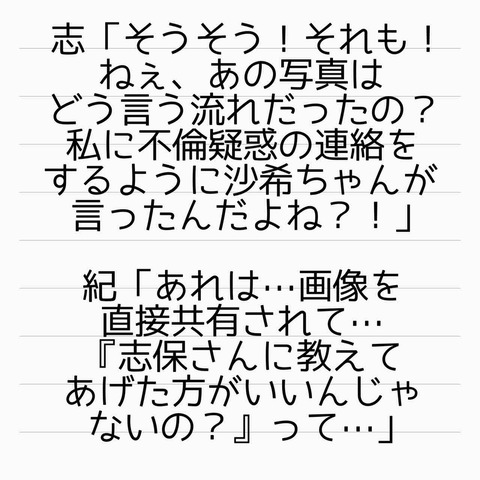 志「そうそう！それも！
ねぇ、あの写真は
どう言う流れだったの？
私に不倫疑惑の連絡を
するように沙希ちゃんが
言ったんだよね？！」
紀「あれは…画像を
直接共有されて…
『志保さんに教えて
あげた方がいいんじゃ
ないの？』って…」